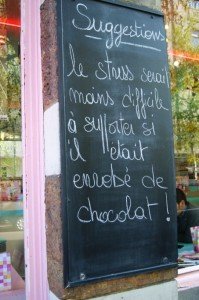 Suggestions
le stress serait
moins difficile
à supporter si
il était
enrobé de
chocolat !